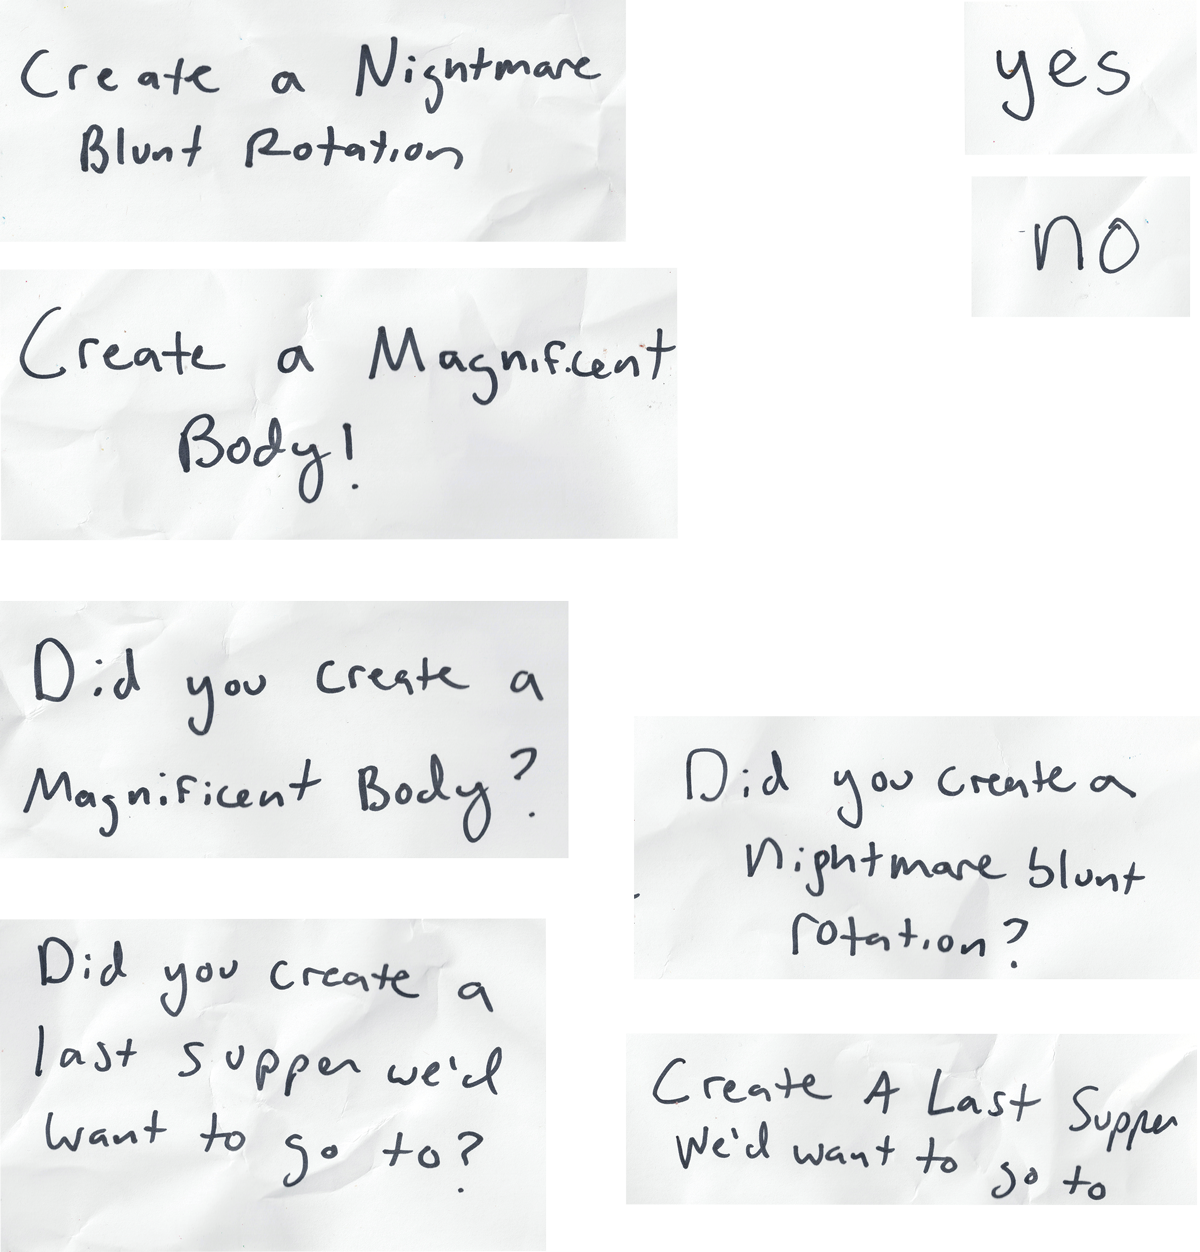 Create a Nightmare
Blunt Rotation
yes
no
Create a Magnificent
Body!
Did you create a
Magnificent Body?
Did you create a
nightmare blunt
rotation?
Did you create a
last supper we'd
want to go to?
Create A Last Supper
We'd want to go to